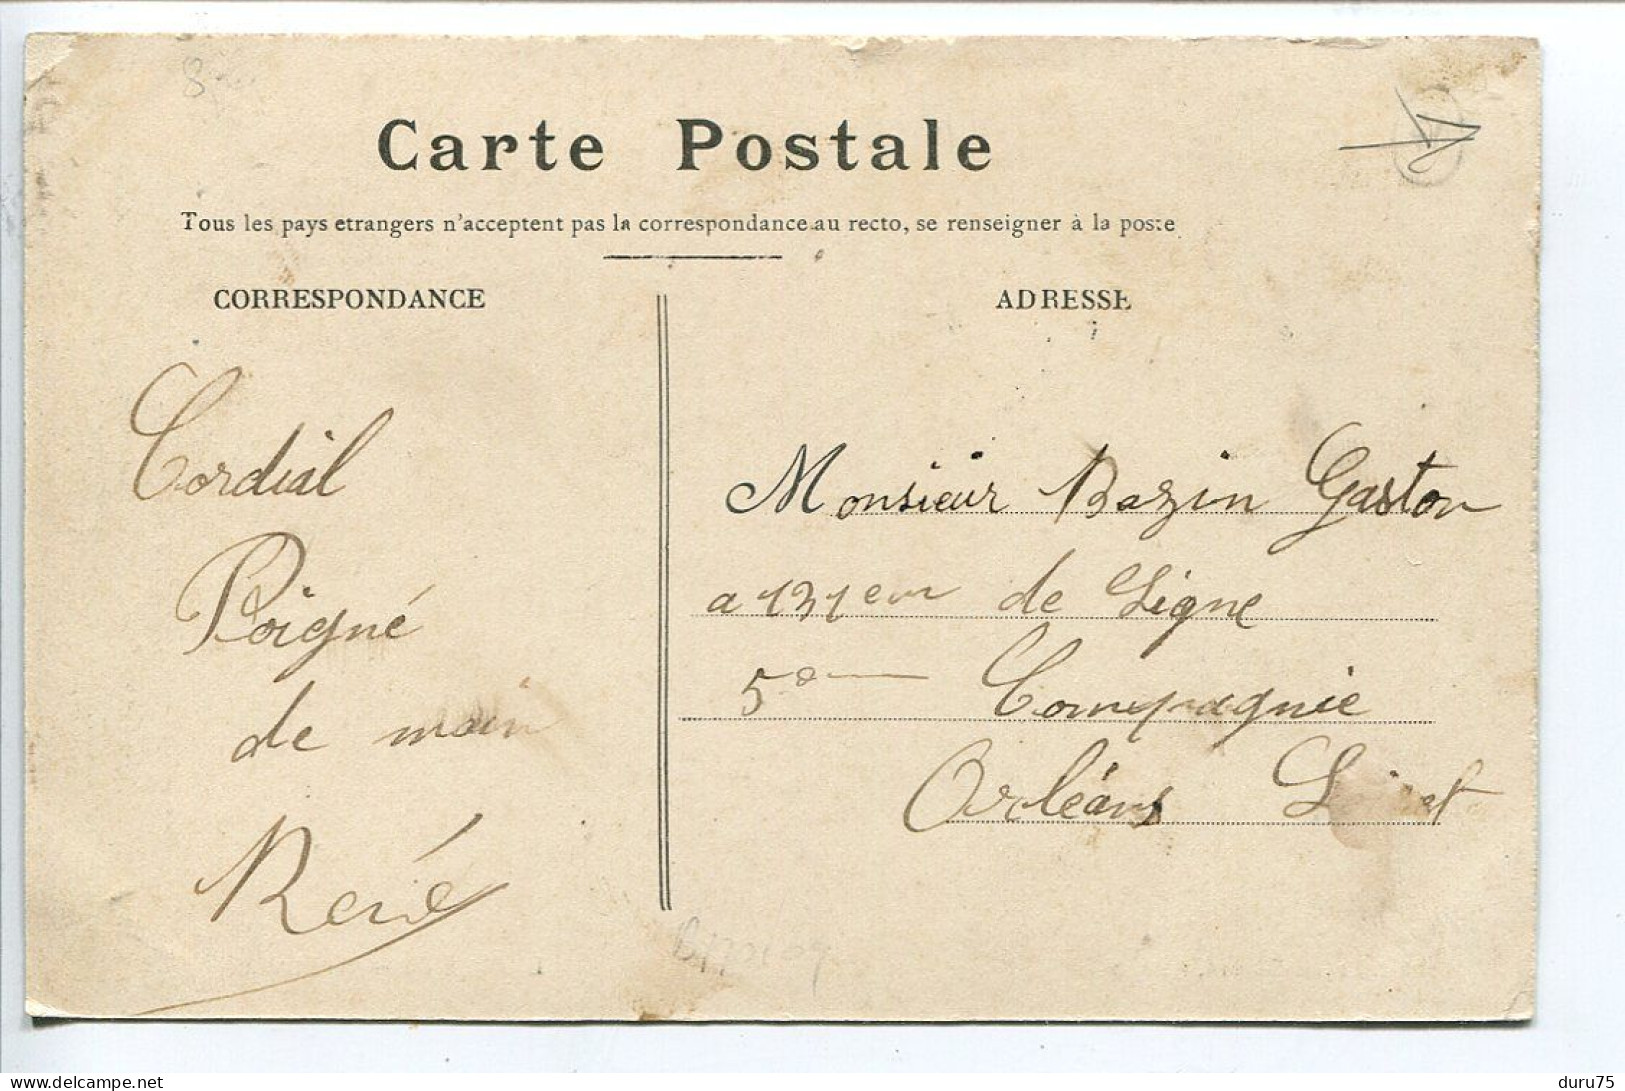 Carte Postale
Tous les pays etrangers n'acceptent pas la correspondance au recto, se renseigner à la poste
CORRESPONDANCE
ADRESSE
Cordial
Poigné
de main
René
Monsieur Bazin Gaston
a 131eme de Ligne
5eme Compagnie
Orléans Loiret
duru75